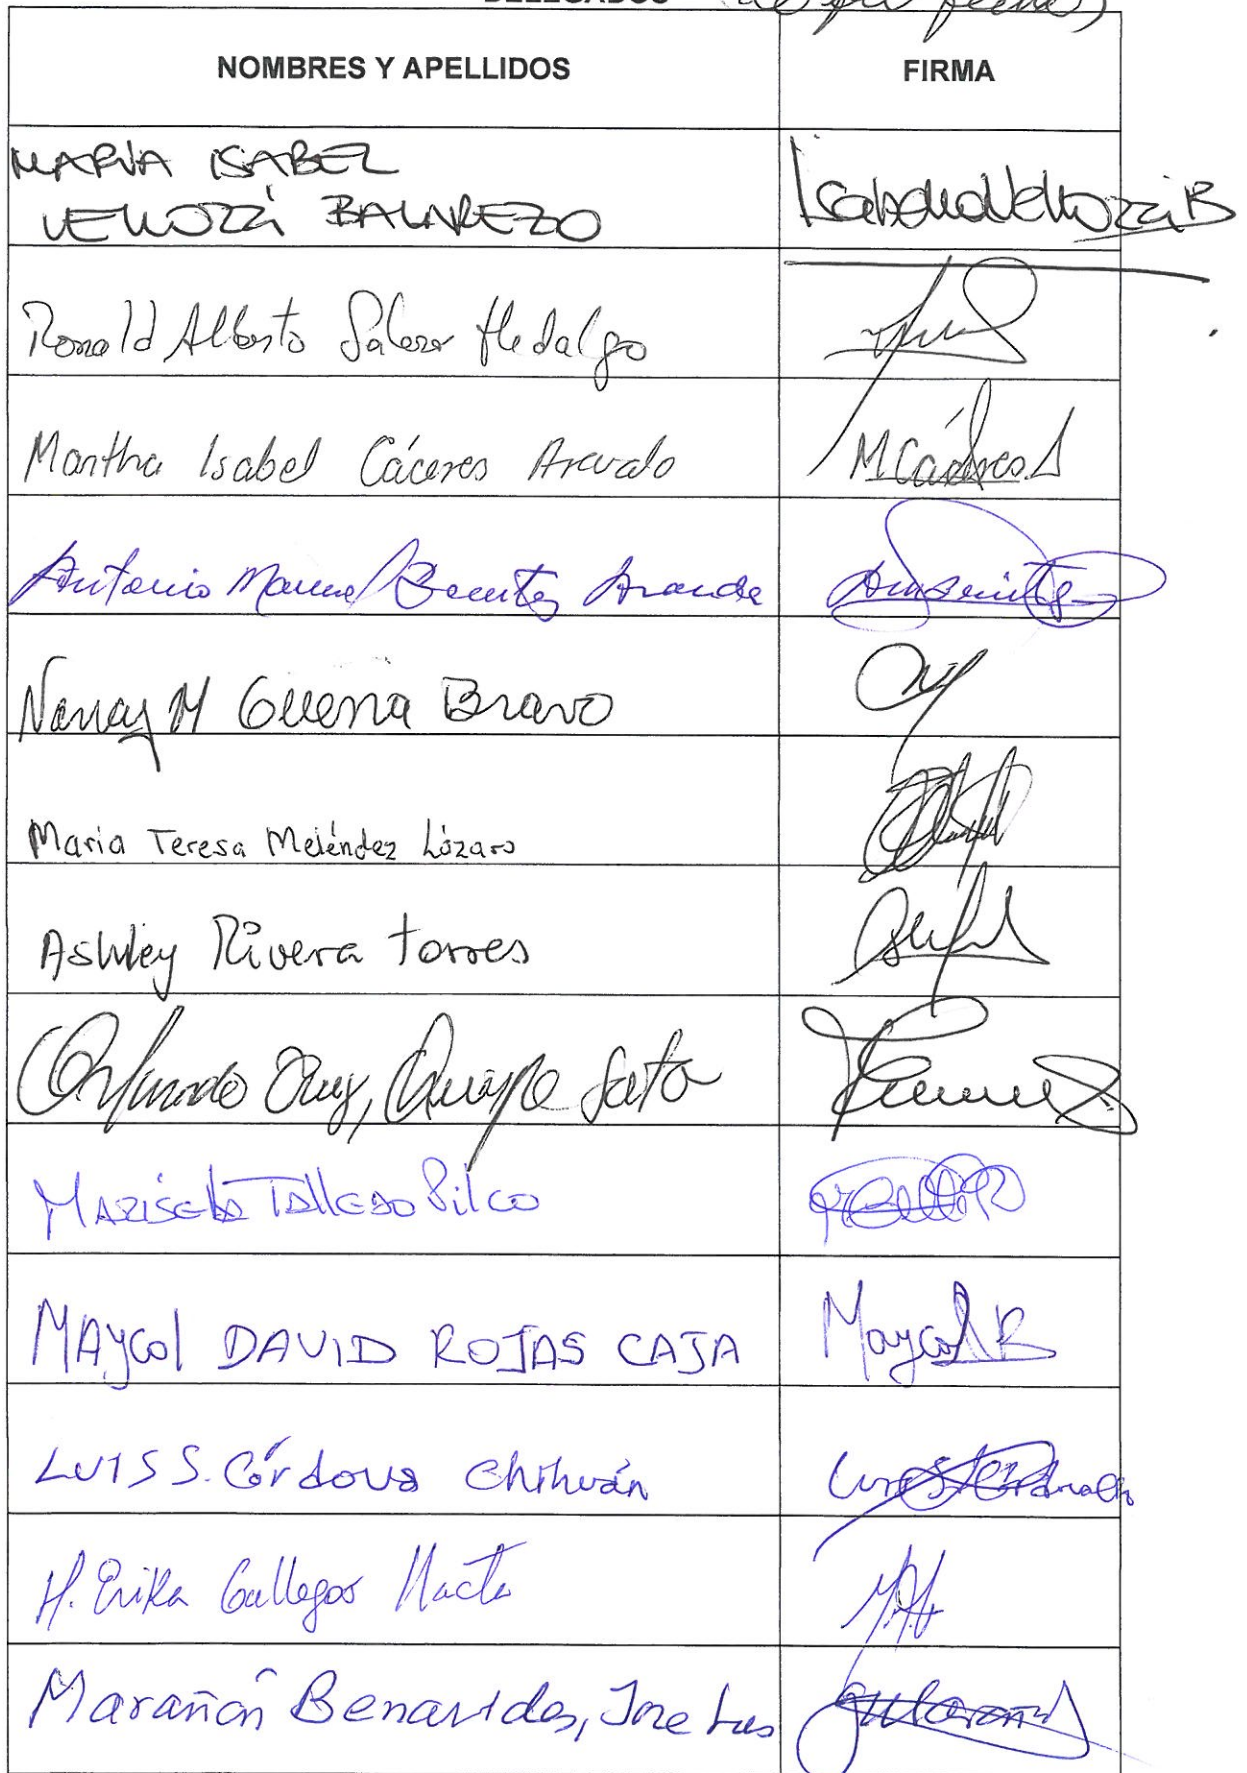 DELEGADOS
NOMBRES Y APELLIDOS FIRMA
MARIA ISABEL
VELLOZZI BALAREZO Isabella Vellozzi B
Ronald Alberto Salazar Hidalgo
Martha Isabel Cáceres Arevalo M Cáceres A
Antonio Manuel Benites Aranda
Nancy M Guerra Bravo
Maria Teresa Meléndez Lázaro
Ashley Rivera Torres
Orlando Cruz, Quispe Soto
MARISELA TALLEDO Pilco
MAYCOL DAVID ROJAS CAJA Maycol R
LUIS S. Córdova Chihuán
H. Erika Gallegos Llacta
Marañón Benavides, Jose Luis